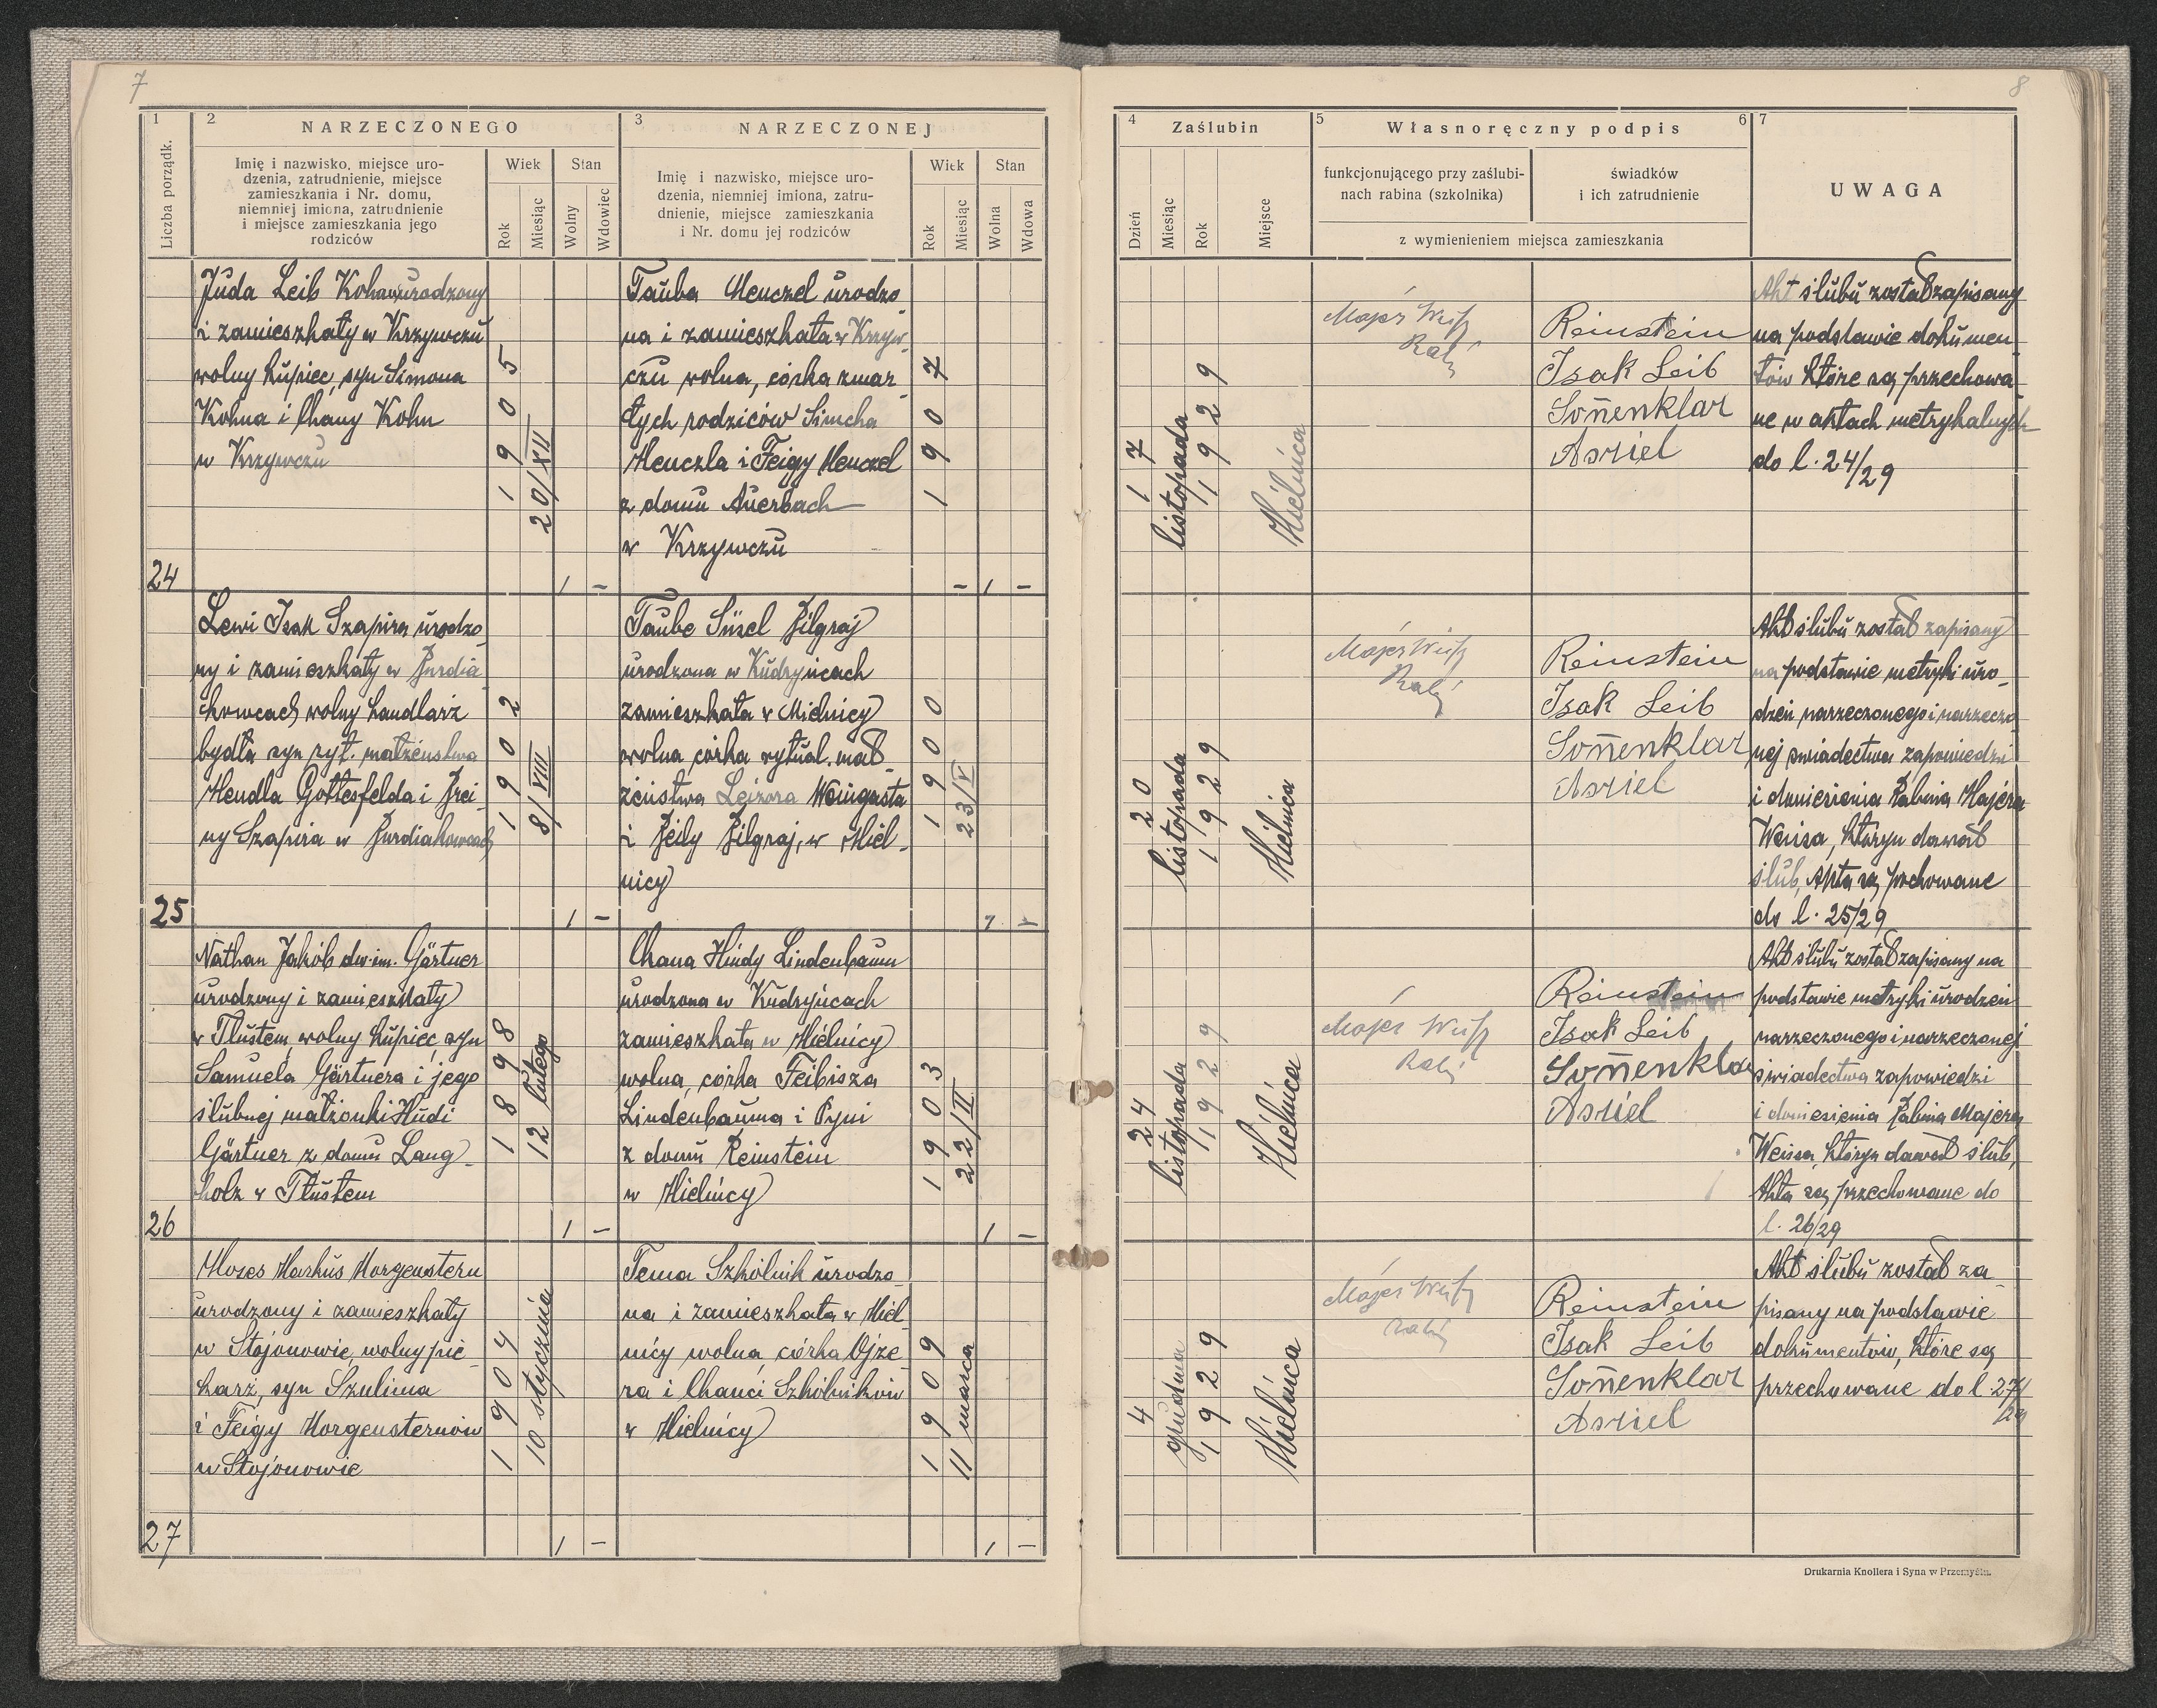 7
1
Liczba porządk.
2
NARZECZONEGO
Imię i nazwisko, miejsce uro-
dzenia, zatrudnienie, miejsce
zamieszkania i Nr. domu,
niemniej imiona, zatrudnienie
i miejsce zamieszkania jego
rodziców
Wiek
Rok
Miesiąc
Stan
Wolny
Wdowiec
3
NARZECZONEJ
Imię i nazwisko, miejsce uro-
dzenia, niemniej imiona, zatru-
dnienie, miejsce zamieszkania
i Nr. domu jej rodziców
Wiek
Rok
Miesiąc
Stan
Wolna
Wdowa
Juda Leib Kohn urodzony
i zamieszkały w Krzywczu
wolny kupiec, syn Simona
Kohna i Chany Kohn
w Krzywczu
1905
20/XII
Tauba Menczel urodzo
na i zamieszkała w Krzyw-
czu wolna, córka zmar
łych rodziców Simcha
Menczla i Feigy Menczel
z domu Auerbach
w Krzywczu
1907
24
1 -
- 1 -
Lewi Isak Szapira urodzo
ny i zamieszkały w Burdia
kowcach wolny handlarz
bydła syn ryt. małżeństwa
Mendla Gottesfelda i Brei-
ny Szapira w Burdiakowcach
1902
8/VIII
Taube Süsel Bilgraj
urodzona w Kudryńcach
zamieszkała w Mielnicy
wolna córka rytual. mał-
żeństwa Lejzora Weingasta
i Beily Bilgraj, w Miel-
nicy
1900
23/V
25
1 -
1 -
Nathan Jakób dw. im. Gärtner
urodzony i zamieszkały
w Tłustem, wolny kupiec, syn
Samuela Gärtnera i jego
ślubnej małżonki Hudi
Gärtner z domu Lang-
holz w Tłustem
1898
12 lutego
Chana Hindy Lindenbaum
urodzona w Kudryńcach
zamieszkała w Mielnicy
wolna, córka Feibisza
Lindenbauma i Pyni
z domu Reinstein
w Mielnicy
1903
22/II
26
1 -
1 -
Moses Markus Morgenstern
urodzony i zamieszkały
w Stojanowie, wolny pie-
karz, syn Szulima
i Feigy Morgensternów
w Stojanowie
1904
10 stycznia
Tema Szkólnik urodzo
na i zamieszkała w Miel
nicy wolna, córka Ojze-
ra i Chanci Szkólników
w Mielnicy
1909
11 marca
27
1 -
1 -
8
4
Zaślubin
Dzień
Miesiąc
Rok
Miejsce
5
Własnoręczny podpis
6
funkcjonującego przy zaślubi-
nach rabina (szkolnika)
świadków
i ich zatrudnienie
z wymienieniem miejsca zamieszkania
7
UWAGA
17
listopada
1929
Mielnica
Majer Weiss
Rabi
Reinstein
Isak Leib
Sonnenklar
Asriel
Akt ślubu został zapisany
na podstawie dokumen
tów które są przechowa
ne w aktach metrykalnych
do l. 24/29
20
listopada
1929
Mielnica
Majer Weiss
Rabi
Reinstein
Isak Leib
Sonnenklar
Asriel
Akt ślubu został zapisany
na podstawie metryki uro-
dzeń narzeczonego i narzeczo
nej świadectwa zapowiedzi
i doniesienia Rabina Majera
Weissa, któryn dawał
ślub, Akta są pochowane
do l. 25/29
24
listopada
1929
Mielnica
Majer Weiss
Rabi
Reinstein
Isak Leib
Sonnenklar
Asriel
Akt ślubu został zapisany na
podstawie metryki urodzeń
narzeczonego i narzeczonej
świadectwa zapowiedzi
i doniesienia Rabina Majera
Weissa, któryn dawał ślub,
Akta są przechowane do
l. 26/29
4
grudnia
1929
Mielnica
Majer Weiss
Rabi
Reinstein
Isak Leib
Sonnenklar
Asriel
Akt ślubu został za
pisany na podstawie
dokumentów, które są
przechowane do l. 27/
/29
Drukarnia Knollera i Syna w Przemyślu.